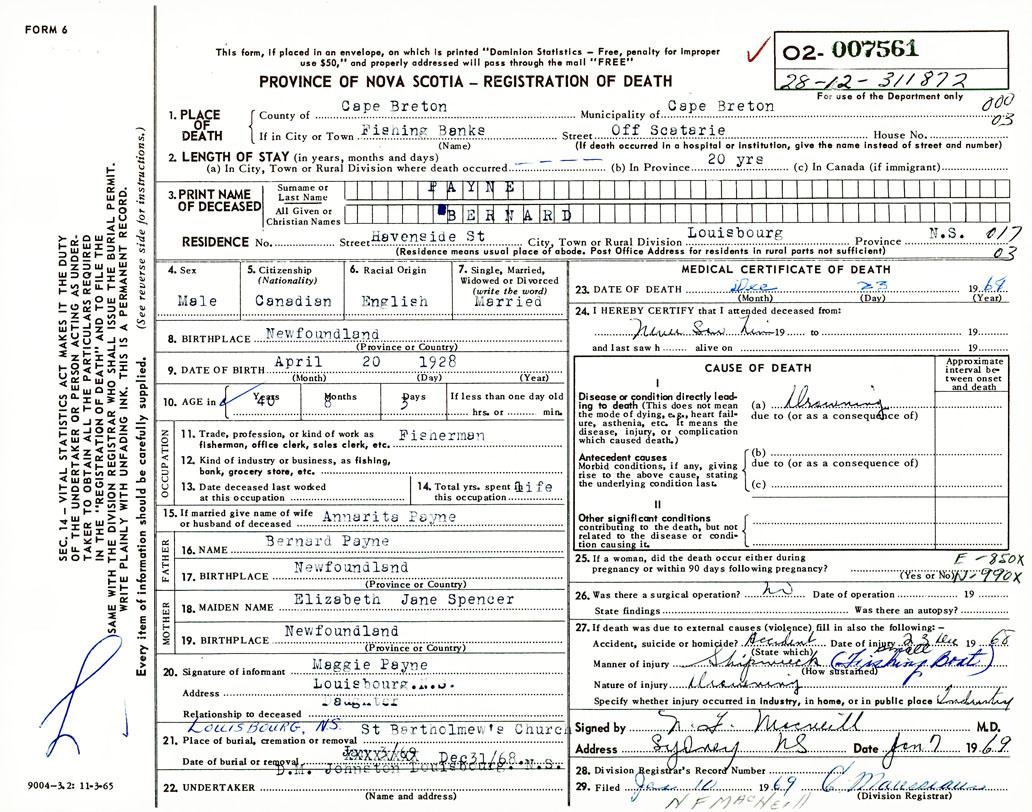 FORM 6
This form, if placed in an envelope, on which is printed "Dominion Statistics – Free, penalty for improper
use $50," and properly addressed will pass through the mail "FREE"
PROVINCE OF NOVA SCOTIA – REGISTRATION OF DEATH
02- 007561
28-12-311872
For use of the Department only
000
03
1. PLACE OF DEATH
County of Cape Breton Municipality of Cape Breton
If in City or Town Fishing Banks Street Off Scatarie House No.
(Name) (If death occurred in a hospital or institution, give the name instead of street and number)
2. LENGTH OF STAY (in years, months and days)
(a) In City, Town or Rural Division where death occurred — — — (b) In Province 20 yrs (c) In Canada (if immigrant)
3. PRINT NAME OF DECEASED
Surname or Last Name PAYNE
All Given or Christian Names BERNARD
RESIDENCE No. Street Havenside St City, Town or Rural Division Louisbourg Province N.S. 017
(Residence means usual place of abode. Post Office Address for residents in rural parts not sufficient) 03
4. Sex
Male
5. Citizenship
(Nationality)
Canadian
6. Racial Origin
English
7. Single, Married,
Widowed or Divorced
(write the word)
Married
8. BIRTHPLACE Newfoundland
(Province or Country)
9. DATE OF BIRTH April 20 1928
(Month) (Day) (Year)
10. AGE in Years 40 Months 8 Days 3 If less than one day old
hrs. or min.
OCCUPATION
11. Trade, profession, or kind of work as Fisherman
fisherman, office clerk, sales clerk, etc.
12. Kind of industry or business, as fishing,
bank, grocery store, etc.
13. Date deceased last worked
at this occupation
14. Total yrs. spent in life
this occupation
15. If married give name of wife
or husband of deceased Annarita Payne
FATHER
16. NAME Bernard Payne
17. BIRTHPLACE Newfoundland
(Province or Country)
MOTHER
18. MAIDEN NAME Elizabeth Jane Spencer
19. BIRTHPLACE Newfoundland
(Province or Country)
20. Signature of informant Maggie Payne
Address Louisbourg.N.S.
Relationship to deceased Daughter
LOUISBOURG, N.S. St Bartholmew's Church
21. Place of burial, cremation or removal
Date of burial or removal Dec31/68.
D.M. Johnston Louisbourg. N.S.
22. UNDERTAKER
(Name and address)
MEDICAL CERTIFICATE OF DEATH
23. DATE OF DEATH Dec 23 1968
(Month) (Day) (Year)
24. I HEREBY CERTIFY that I attended deceased from:
Never Saw him 19 to 19
and last saw h alive on 19
CAUSE OF DEATH
Approximate interval between onset and death
I
Disease or condition directly leading to death (This does not
the mode of dying, e.g., heart failure, asthenia, etc. It means the
disease, injury, or complication
which caused death.)
(a) Drowning
due to (or as a consequence of)
Antecedent causes
Morbid conditions, if any, giving
rise to the above cause, stating
the underlying condition last.
(b)
due to (or as a consequence of)
(c)
II
Other significant conditions
contributing to the death, but not
related to the disease or condition causing it.
25. If a woman, did the death occur either during
pregnancy or within 90 days following pregnancy?
(Yes or No)
E-850X
N-990X
26. Was there a surgical operation? no Date of operation 19
State findings Was there an autopsy?
27. If death was due to external causes (violence) fill in also the following: –
Accident, suicide or homicide? Accident Date of injury 23 Dec 1968
(State which)
Manner of injury Shipwreck (Small Fishing Boat)
(How sustained)
Nature of injury Drowning
Specify whether injury occurred in industry, in home, or in public place Industry
Signed by N. F. Macneill M.D.
Address Sydney NS Date Jan 7 1969
28. Division Registrar's Record Number
29. Filed Jan 10 1969
(Division Registrar)
N F MACNEILL
SEC. 14 – VITAL STATISTICS ACT MAKES IT THE DUTY
OF THE UNDERTAKER OR PERSON ACTING AS UNDERTAKER TO OBTAIN ALL THE PARTICULARS REQUIRED
IN THE "REGISTRATION OF DEATH" AND TO FILE THE
SAME WITH THE DIVISION REGISTRAR WHO SHALL ISSUE THE BURIAL PERMIT.
WRITE PLAINLY WITH UNFADING INK. THIS IS A PERMANENT RECORD.
Every item of information should be carefully supplied. (See reverse side for instructions.)
9004-3.2: 11-3-65